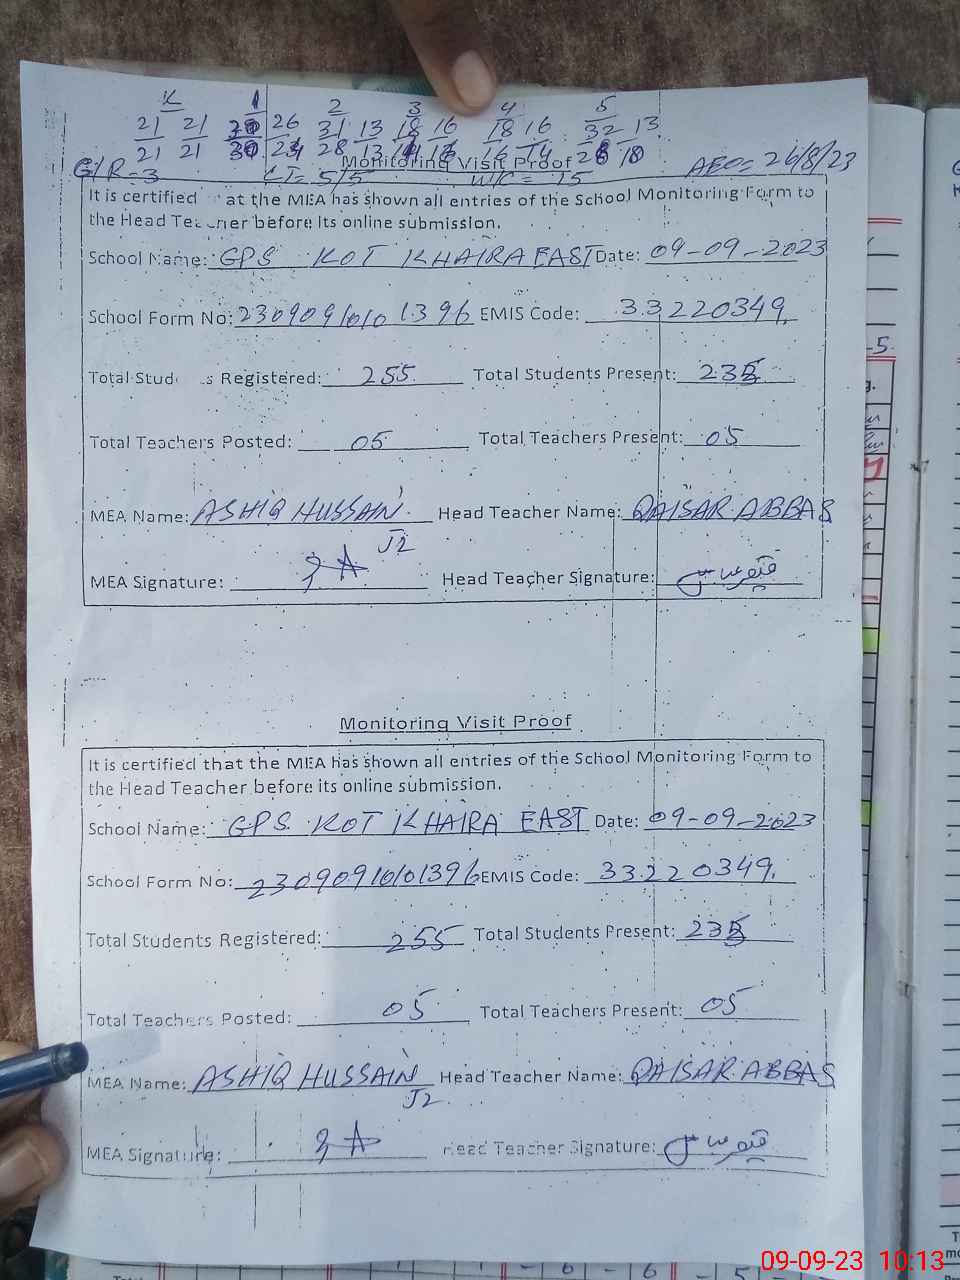 K 1 2 3 4 5
21 21 26 31 13 18 16 18 16 32 13
21 21 30 24 28 13 16 14 18
Monitoring Visit Proof
G/R-3 CT= 5/5 W/C= 15 AEO= 26/8/23
It is certified at the MEA has shown all entries of the School Monitoring Form to
the Head Teacher before its online submission.
School Name: GPS KOT KHAIRA EAST Date: 09-09-2023
School Form No: 2309091001396 EMIS Code: 33220349
Total Registered: 255 Total Students Present: 235
Total Teachers Posted: 05 Total Teachers Present: 05
MEA Name: ASHIQ HUSSAIN Head Teacher Name: QAISAR ABBAS
J2
MEA Signature: Head Teacher Signature:
Monitoring Visit Proof
It is certified that the MEA has shown all entries of the School Monitoring Form to
the Head Teacher before its online submission.
School Name: GPS KOT KHAIRA EAST Date: 09-09-2023
School Form No: 2309091001396 EMIS Code: 33220349
Total Students Registered: 255 Total Students Present: 235
Total Teachers Posted: 05 Total Teachers Present: 05
MEA Name: ASHIQ HUSSAIN Head Teacher Name: QAISAR ABBAS
J2
MEA Signature: Head Teacher Signature:
09-09-23 10:13